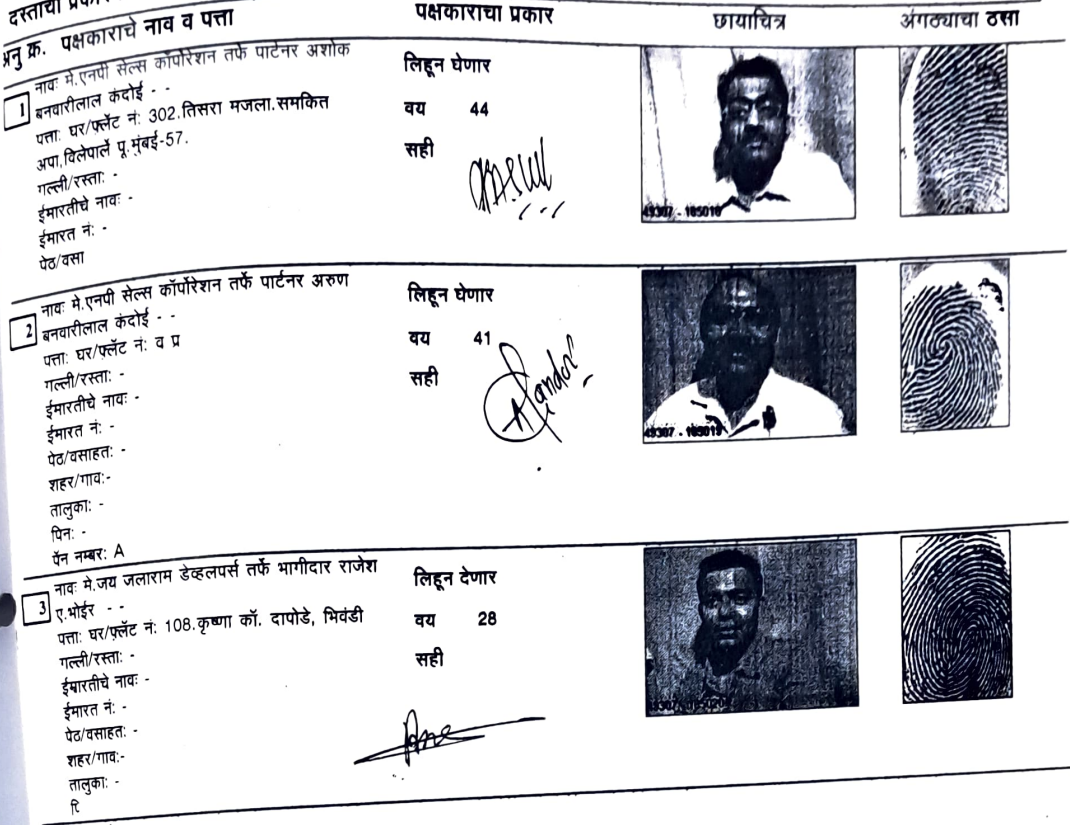 दस्ताचा प्रकार
अनु क्र. पक्षकाराचे नाव व पत्ता पक्षकाराचा प्रकार छायाचित्र अंगठ्याचा ठसा
1
नावः मे.एनपी सेल्स कॉर्पोरेशन तर्फे पार्टनर अशोक
बनवारीलाल कंदोई - -
पत्ताः घर/फ्लॅट नं: 302.तिसरा मजला.समकित
अपा,विलेपार्ले पू.मुंबई-57.
गल्ली/रस्ताः -
ईमारतीचे नावः -
ईमारत नं: -
पेठ/वसा
लिहून घेणार
वय 44
सही
49307 - 185018
2
नावः मे.एनपी सेल्स कॉर्पोरेशन तर्फे पार्टनर अरुण
बनवारीलाल कंदोई - -
पत्ताः घर/फ्लॅट नं: व प्र
गल्ली/रस्ताः -
ईमारतीचे नावः -
ईमारत नं: -
पेठ/वसाहतः -
शहर/गावः-
तालुकाः -
पिनः -
पॅन नम्बरः A
लिहून घेणार
वय 41
सही
49307 - 185019
3
नावः मे.जय जलाराम डेव्हलपर्स तर्फे भागीदार राजेश
ए.भोईर - -
पत्ताः घर/फ्लॅट नं: 108.कृष्णा कॉ. दापोडे, भिवंडी
गल्ली/रस्ताः -
ईमारतीचे नावः -
ईमारत नं: -
पेठ/वसाहतः -
शहर/गावः-
तालुकाः -
लिहून देणार
वय 28
सही